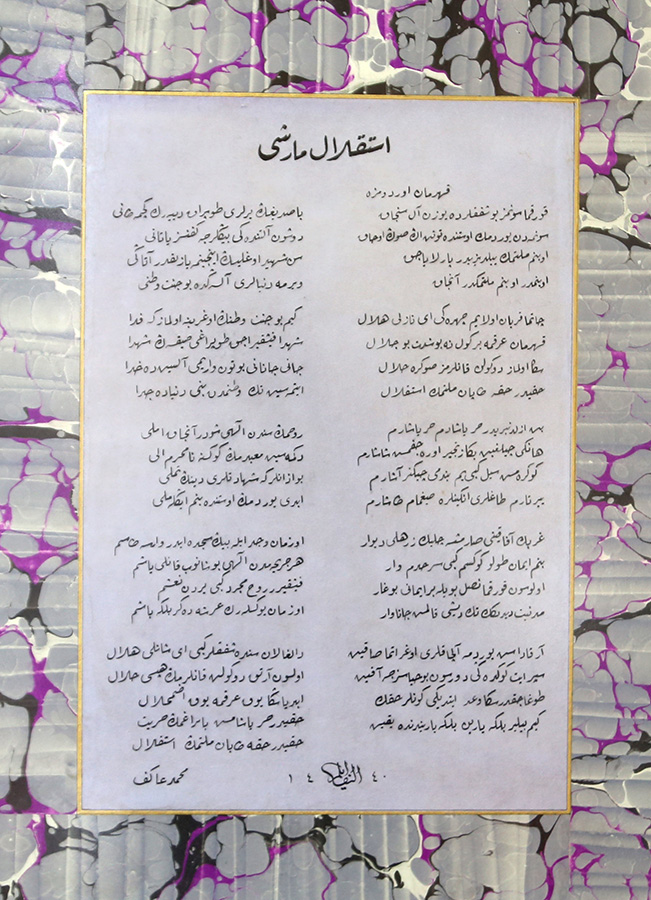 استقلال مارشی
قهرمان اوردومزه
قورقما سونمز بو شفقلرده یوزن آل سنجاق
سونمدن یوردمڭ اوستنده توتن اڭ صوڭ اوجاق
او بنم ملتمڭ ییلدیزیدر پارلایاجق
او بنمدر او بنم ملتمڭدر آنجاق
چاتما قربان اولایم چهره‌ڭی ای نازلی هلال
قهرمان عرقمه بر گول نه بو شدت بو جلال
سڭا اولماز دوکولن قانلرمز صوڭره حلال
حقیدر حقه طاپان ملتمڭ استقلال
بن ازلدنبریدر حر یاشادم حر یاشارم
هانگی چیلغین بڭا زنجیر اوره‌جقمش شاشارم
کوکره‌مش سیل کبی‌یم بندمی چیگنر آشارم
ییرتارم طاغلری انگینلره صیغمام طاشارم
غربڭ آفاقنی صارمشسه چلیك زرهلی دیوار
بنم ایمان طولو گوکسم کبی سرحدم وار
اولوسون قورقما نصل بویله بر ایمانی بوغار
مدنیت دیدیگڭ تك دیشی قالمش جاناوار
آرقاداش یوردمه آلچاقلری اوغراتما صاقین
سپر ایت گوده‌ڭی دورسون بو حیاسزجه آقین
طوغاجقدر سڭا وعد ایتدیگی گونلر حقك
کیم بیلیر بلکه یارین بلکه یاریندنده یقین
باصدیغڭ یرلری طوپراق دییه‌رك گچمه طانی
دوشون آلتنده‌کی بیڭلرجه کفنسز یاتانی
سن شهید اوغلیسڭ اینجیتمه یازیقدر آتاڭی
ویرمه دنیالری آلسه‌ڭده بو جنت وطنی
کیم بو جنت وطنڭ اوغرینه اولماز که فدا
شهدا فیشقیراجق طوپراغی صیقسه‌ڭ شهدا
جانی جانانی بوتون واریمی آلسین ده خدا
ایتمه‌سین تك وطنمدن بنی دنیاده جدا
روحمڭ سندن الهی شودر آنجاق املی
دگمه‌سین معبدمڭ گوکسنه نامحرم الی
بو اذانلر که شهادتلری دینڭ تملی
ابدی یوردمڭ اوستنده بنم ایڭله‌ملی
او زمان وجد ایله بیڭ سجده ایدر وارسه طاشم
هر جریحه‌مدن الهی بوشانوب قانلی یاشم
فیشقیرر روح مجرد کبی یردن نعشم
او زمان یوکسلرك عرشه دگر بلکه باشم
دالغالان سنده شفقلر کبی ای شانلی هلال
اولسون آرتق دوکولن قانلرمڭ هپسی حلال
ابدیا سڭا یوق عرقمه یوق اضمحلال
حقیدر حر یاشامش بایراغمڭ حریت
حقیدر حقه طاپان ملتمڭ استقلال
محمد عاکف
١٤٤٠